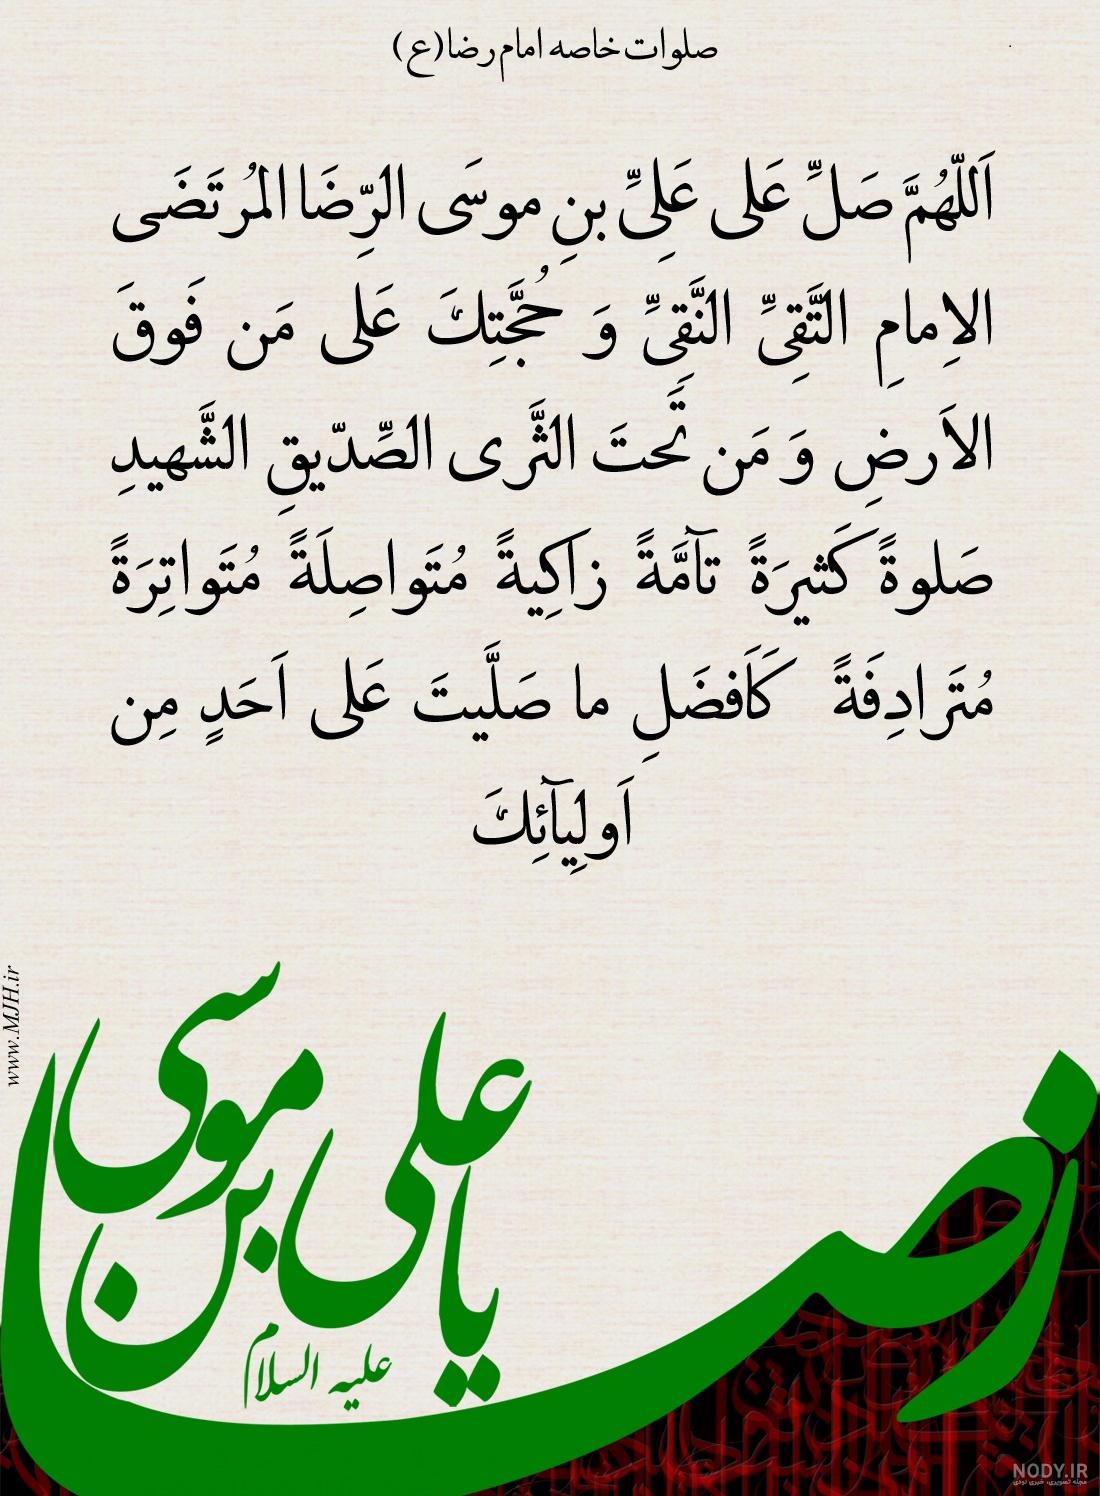 صلوات خاصه امام رضا(ع)
اَللّهُمَّ صَلِّ عَلی عَلِیِّ بنِ موسَی الرِّضَا المُرتَضَی
الاِمامِ التَّقِیِّ النَّقِیِّ وَ حُجَّتِكَ عَلی مَن فَوقَ
الاَرضِ وَ مَن تَحتَ الثَّری الصِّدّیقِ الشَّهیدِ
صَلوةً كَثیرَةً تآمَّةً زاكِیةً مُتَواصِلَةً مُتَواتِرَةً
مُتَرادِفَةً كَاَفضَلِ ما صَلَّیتَ عَلی اَحَدٍ مِن
اَولِیآئِكَ
یا علی بن موسی
رضا
علیه السلام
www.MJH.ir
NODY.IR
مجله تصویری، خبری نودی